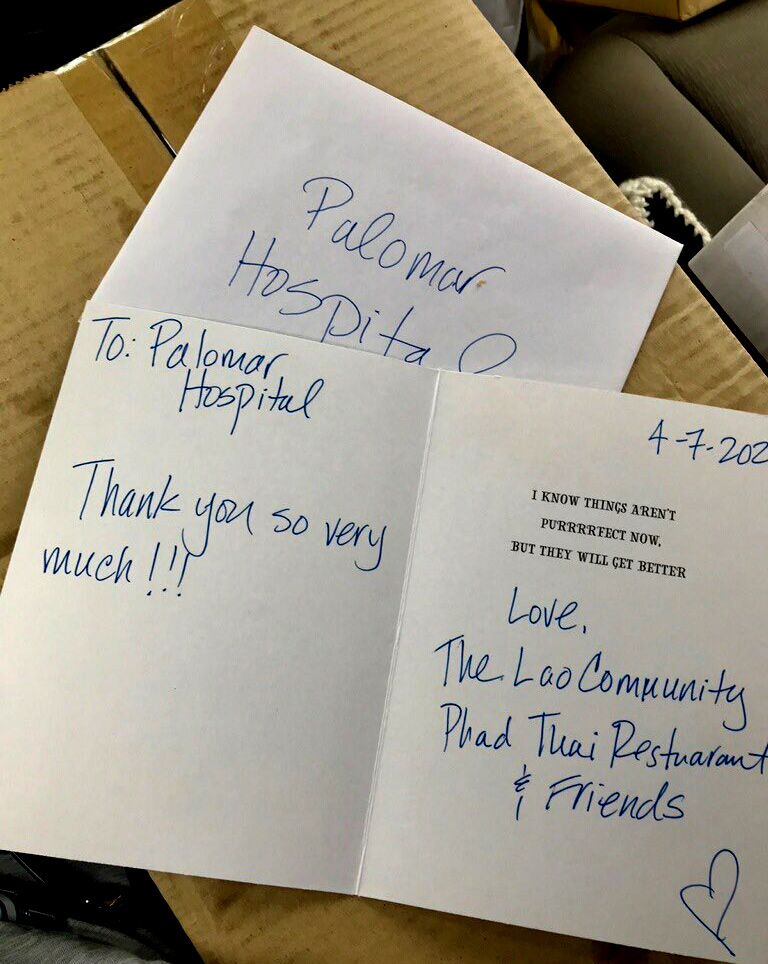 Palomar
Hospital
To: Palomar
Hospital
Thank you so very
much!!!
4-7-202
I KNOW THINGS AREN'T
PURRRRFECT NOW,
BUT THEY WILL GET BETTER
Love,
The Lao Community
Phad Thai Restuarant
& Friends